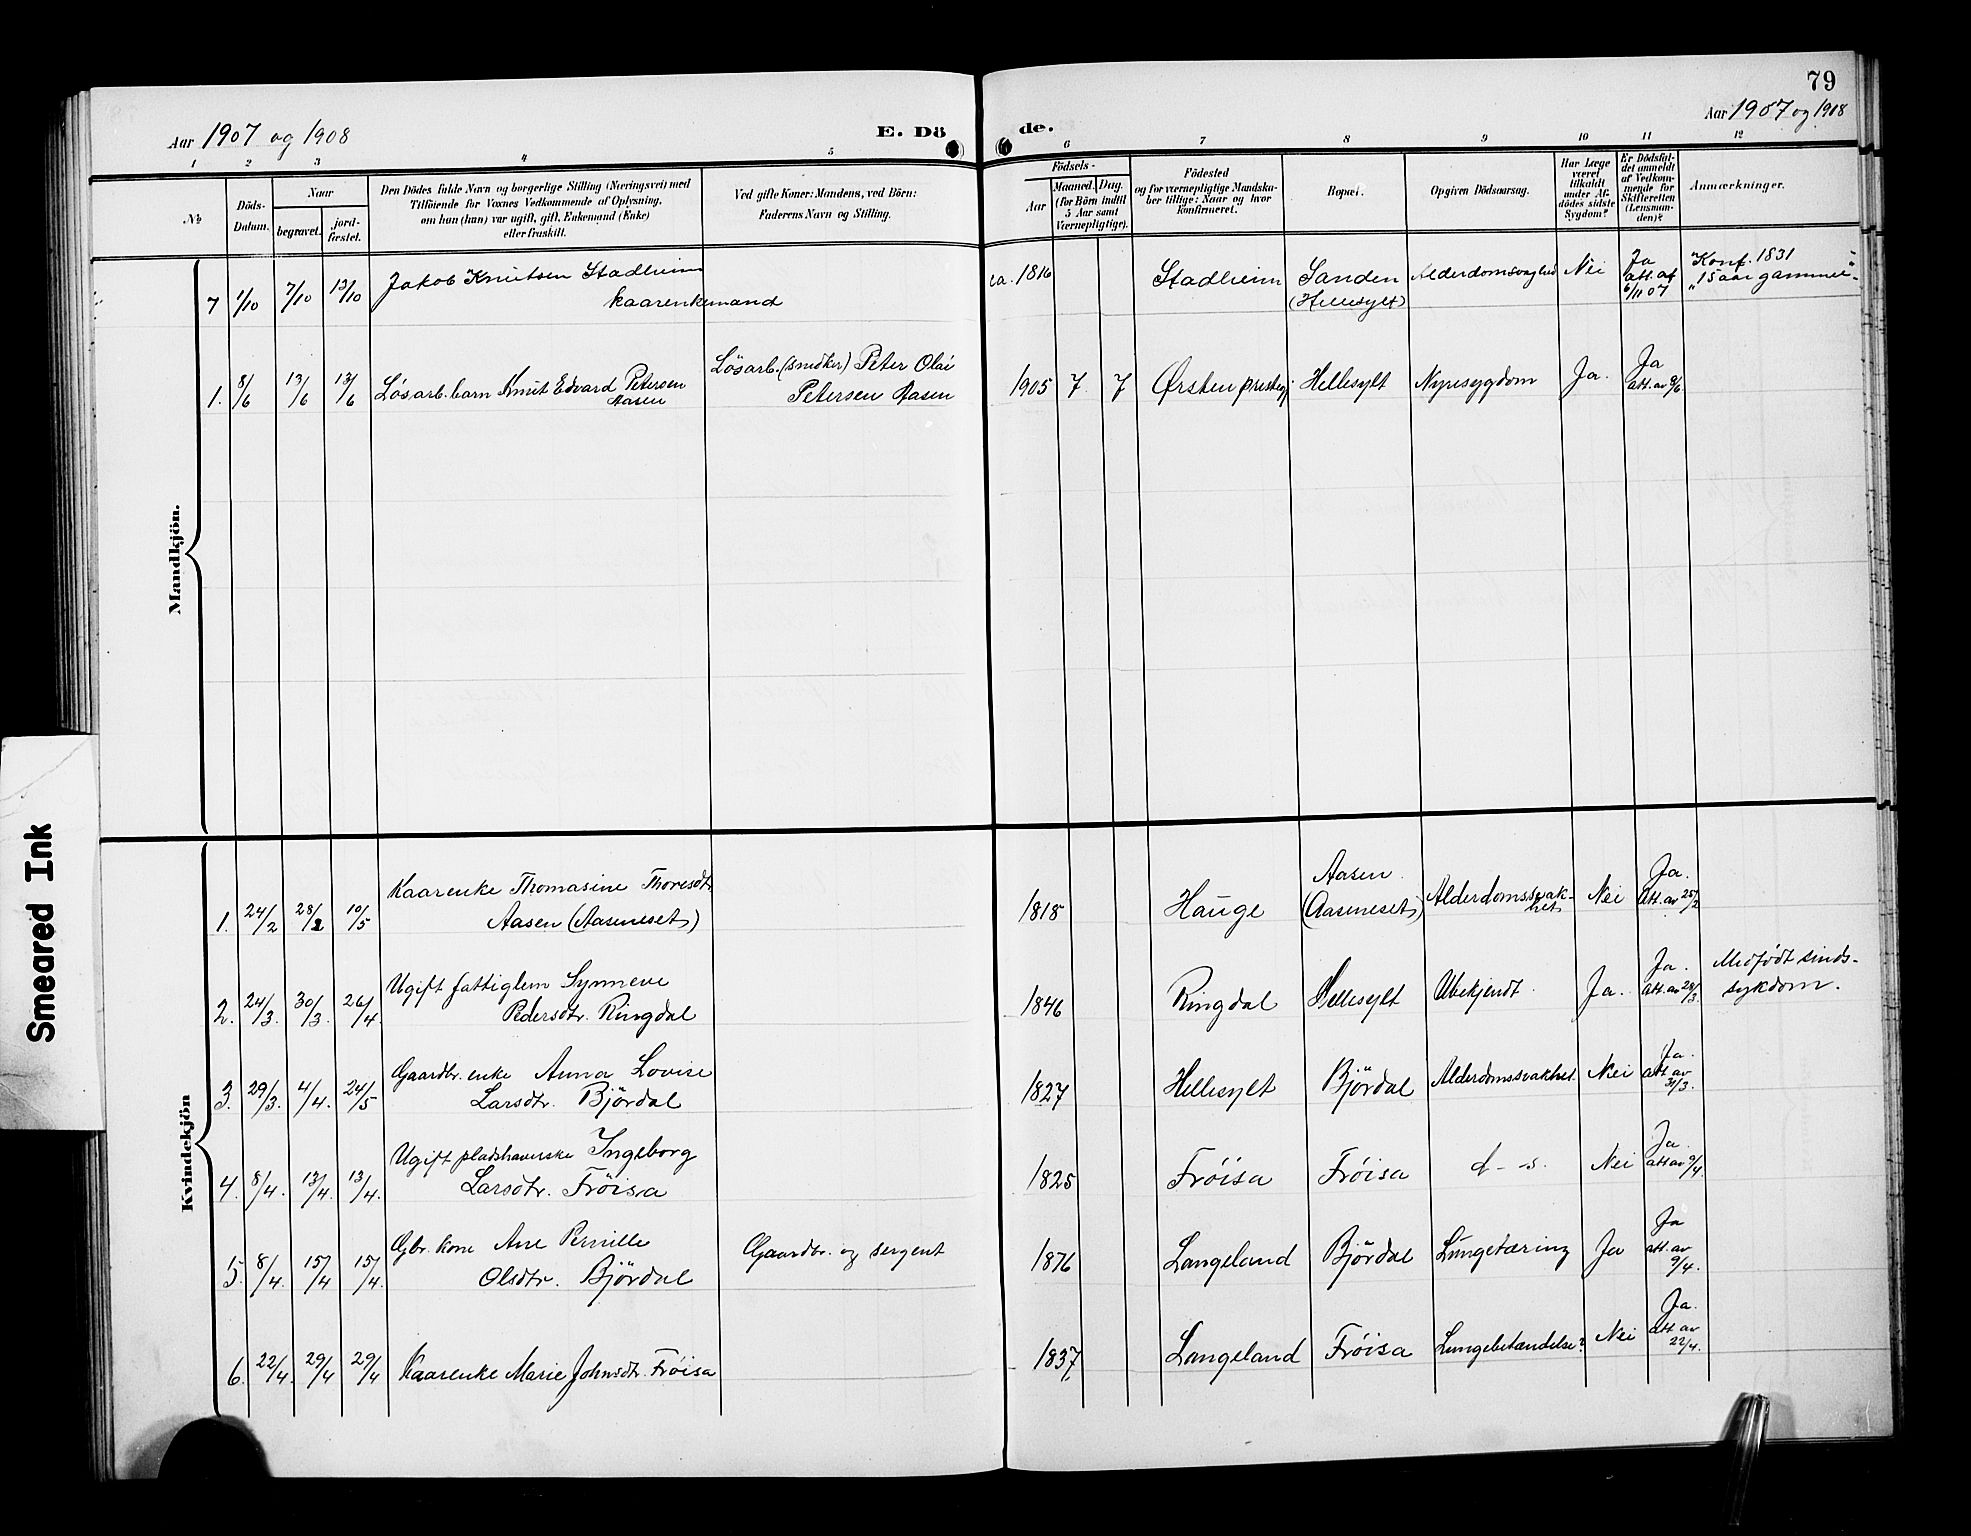 79
Aar 1907 og 1908
E. Dö
de.
Aar 1907 og 1908
1 2 3 4 5 6 7 8 9 10 11 12
№
Döds-
Datum.
Naar
begravet.
jord-
fæstet.
Den Dödes fulde Navn og borgerlige Stilling (Næringsvei) med
Tilföiende for Voxnes Vedkommende af Oplysning,
om han (hun) var ugift, gift, Enkemand (Enke)
eller fraskilt.
Ved gifte Koner: Mandens, ved Börn:
Faderens Navn og Stilling.
Födsels-
Aar
Maaned. Dag.
(for Börn indtil
5 Aar samt
Værnepligtige).
Födested
og for værnepligtige Mandska-
ber tillige: Naar og hvor
konfirmeret.
Bopæl.
Opgiven Dödsaarsag.
Har Læge
været
tilkaldt
under Af-
dödes sidste
Sygdom?
Er Dödsfal-
det anmeldt
af Vedkom-
mende for
Skifteretten
(Lensman-
den)?
Anmærkninger.
Mandkjön.
7 1/10 7/10 13/10 Jakob Knutsen Stadheim
kaarenkemand
ca. 1816 Stadheim Sanden
(Hellesylt)
Alderdomsvaghed Nei Ja
att. af
6/11 07
"Konf. 1831
"15 aar gammel"
1. 8/6 13/6 13/6 Løsarb. barn Knut Edvard Petersen
Aasen
Løsarb. (snedker) Peter Olai
Petersen Aasen
1905 7 7 Ørsten præstegj. Hellesylt Nyresygdom Ja. Ja
att. av 9/6
Kvindekjön
1. 24/2 28/2 10/5 Kaarenke Thomasine Thoresdtr
Aasen (Aaseneset)
1818 Hauge Aasen
(Aaseneset)
Alderdomssvak-
het
Nei Ja.
att. av 25/2
2. 24/3. 30/3. 26/4 Ugift fattiglem Synneve
Pedersdtr. Ringdal
1846 Ringdal Hellesylt Ubekjendt. Ja. Ja.
att. av 28/3.
Medfödt sinds-
sykdom.
3. 29/3. 4/4. 24/5 Gaardbr. enke Anna Lovise
Larsdtr. Björdal
1827 Hellesylt Björdal Alderdomssvakhet. Nei Ja.
att av
31/3.
4. 8/4. 13/4. 13/4. Ugift pladshaverske Ingeborg
Larsdtr. Fröisa
1825 Fröisa Fröisa d - s. Nei Ja.
att av 9/4.
5. 8/4. 15/4 15/4. Gbr. kone Ane Pernille
Olsdtr. Björdal
Gaardbr. og sergent
1876 Langeland Björdal Lungetæring Ja Ja
att. av
9/4.
6. 22/4. 29/4 29/4 Kaarenke Marie Johnsdtr. Fröisa
1837 Langeland Fröisa Lungebetændelse? Nei Ja.
att av
22/4.
Smeared Ink